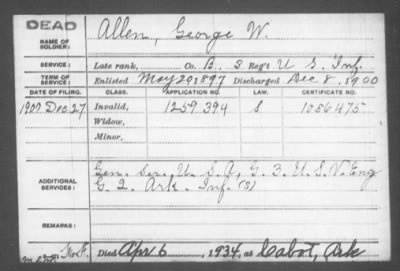 DEAD
NAME OF SOLDIER: Allen, George W.
SERVICE: Late rank, Co. B, 3 Reg't U S Inf.
TERM OF SERVICE: Enlisted May 20 1897 Discharged Dec 8, 1900
DATE OF FILING. CLASS. APPLICATION NO. LAW. CERTIFICATE NO.
1900 Dec 27 Invalid, 1259 394 S 1056475
Widow,
Minor,
ADDITIONAL SERVICES: Gen. Ser. U.S.A, G. 3. U.S.V. Eng
G. 2. Ark. Inf. (S)
REMARKS:
Died Apr 6, 1934, at Cabot, Ark